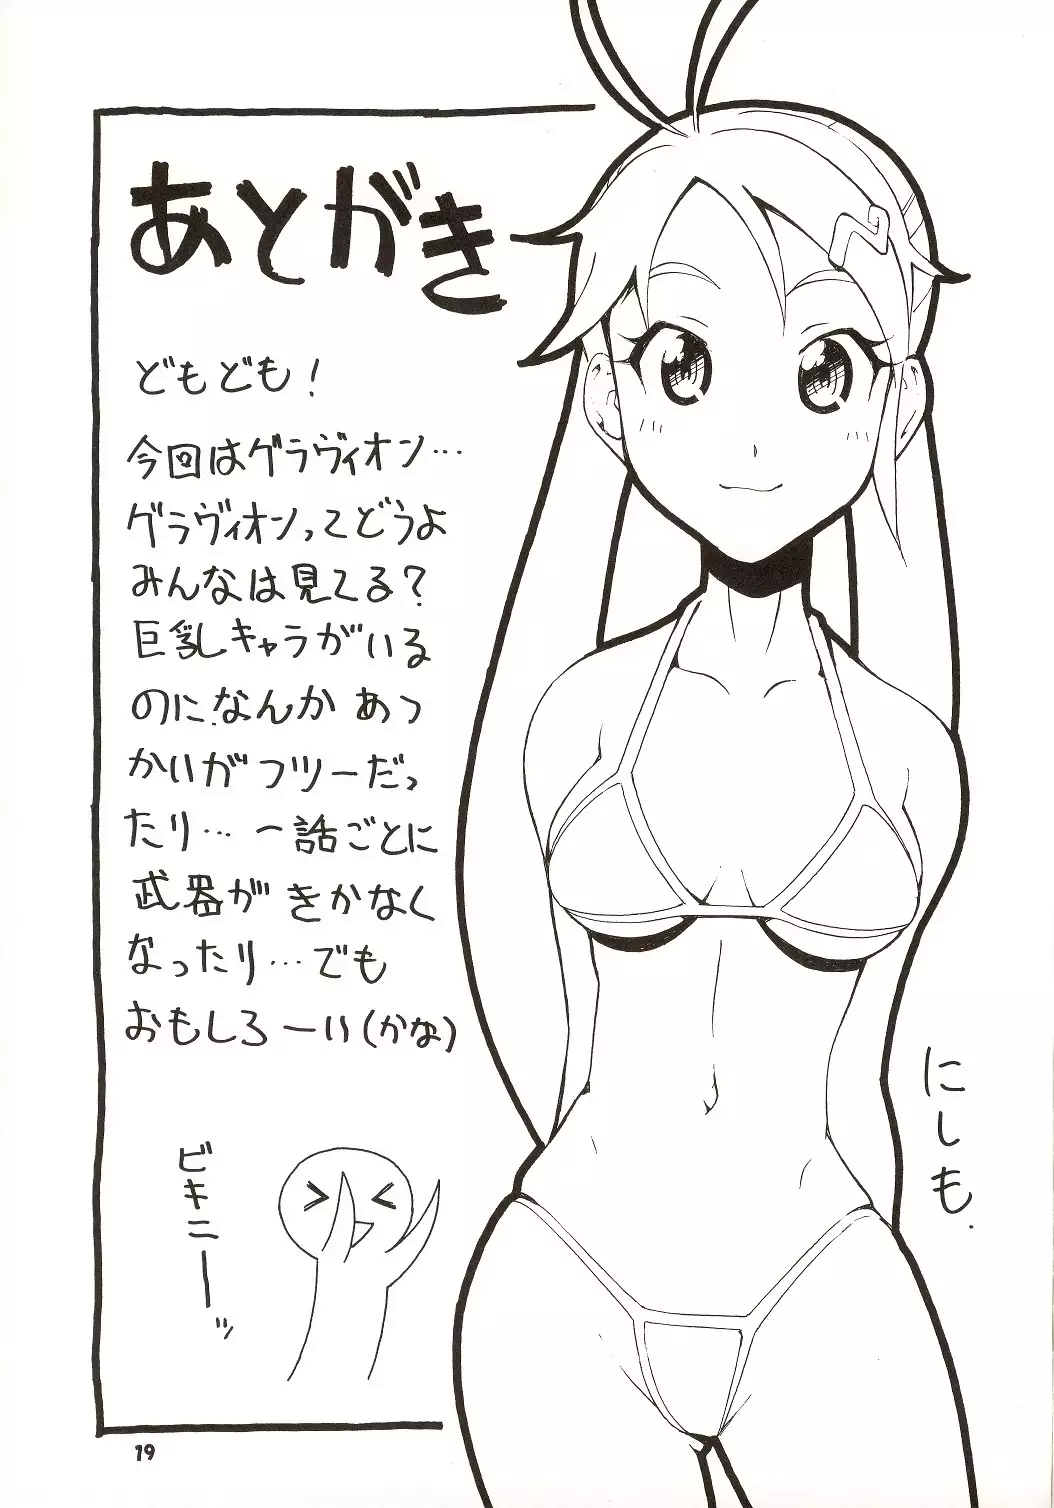 あとがき
どもども!
今回はグラヴィオン…
グラヴィオンってどうよ
みんなは見てる?
巨乳キャラがいる
のになんか あつ
かいがフツーだっ
たり… 一話ごとに
武器がきかなく
なったり…でも
おもしろーい(かな)
ビキニーッ
にしも.
19